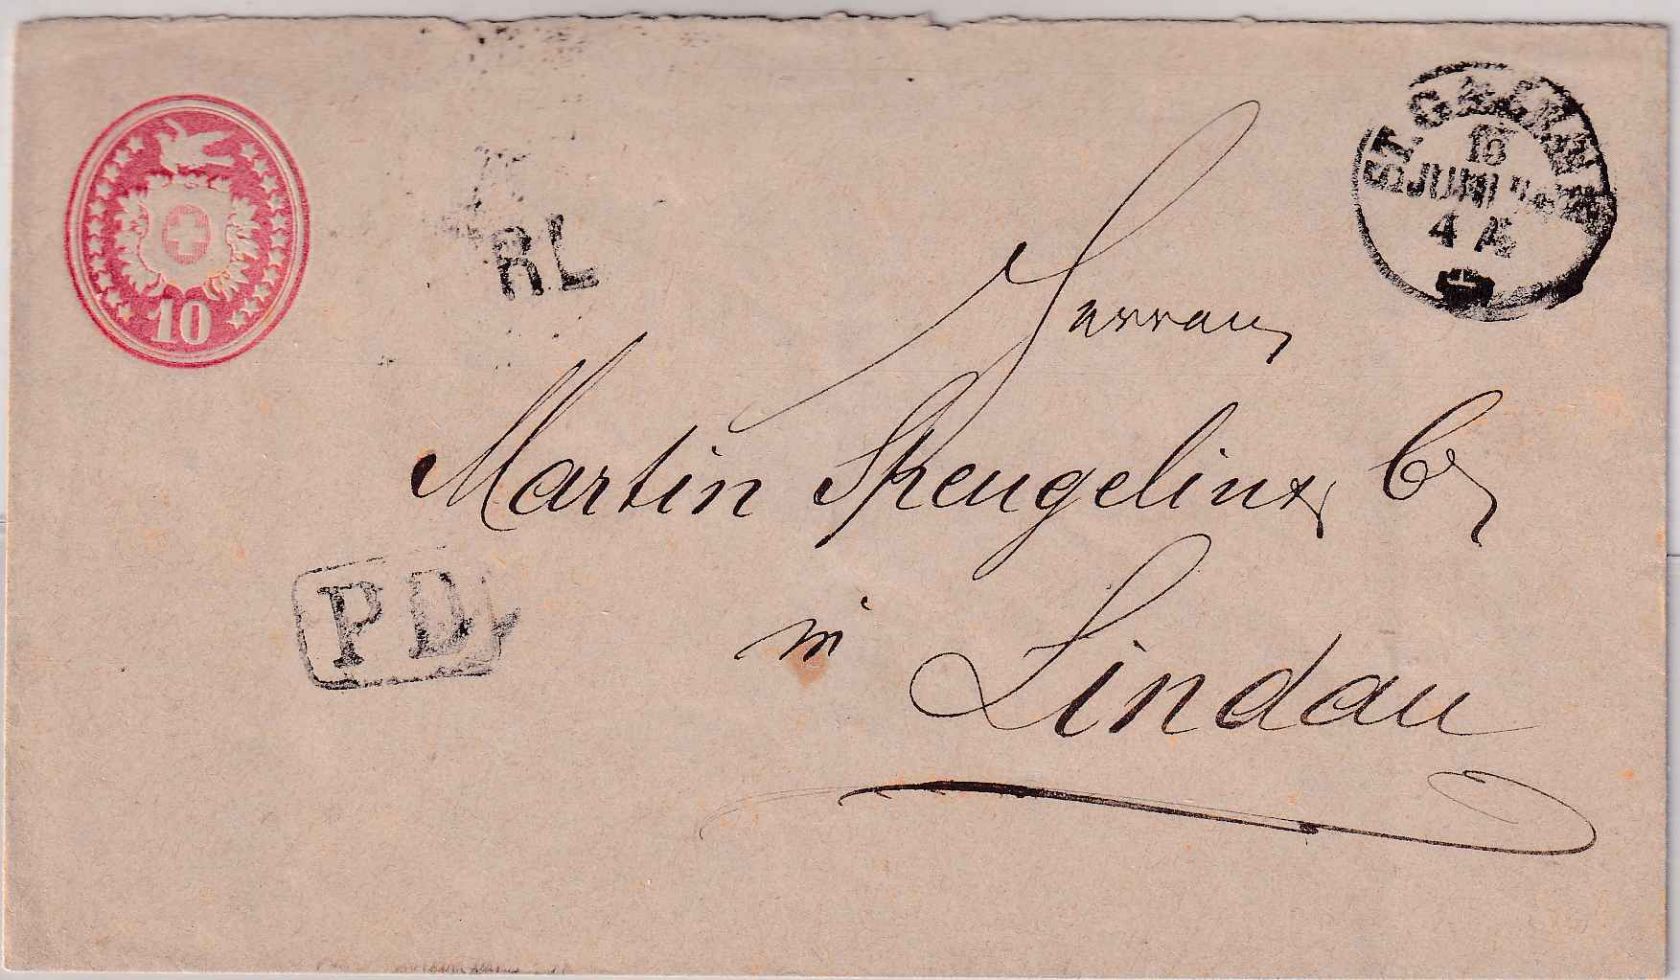 10
ST. GALLEN
JUNI
4
RL
Herren
Martin Spengelin & Co
in Lindau
PD